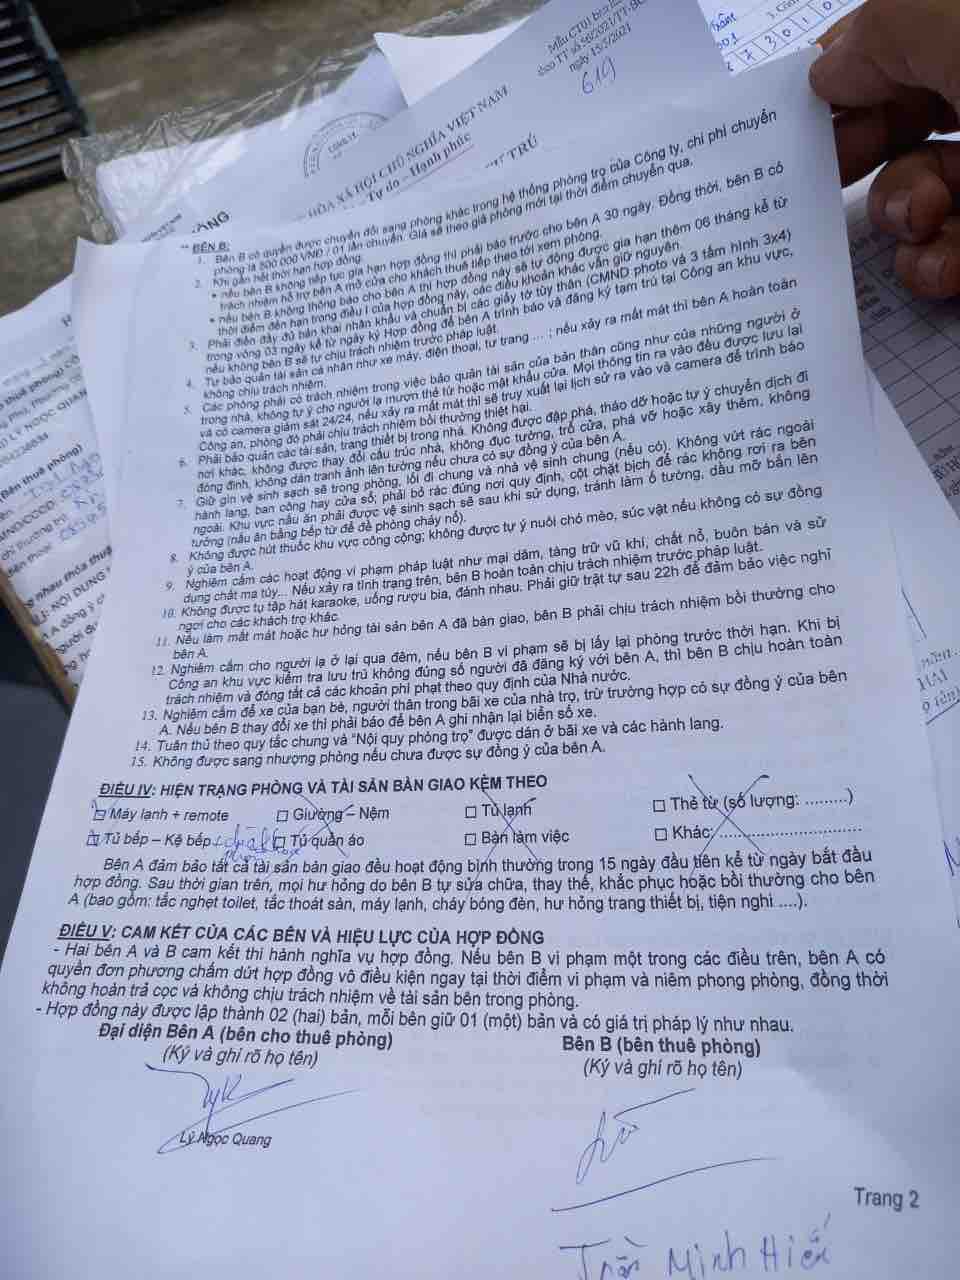 Mẫu CT01 ban
theo TT số 56/2021/TT-BCA
ngày 15/5/2021
619
HÒA XÃ HỘI CHỦ NGHĨA VIỆT NAM
Tự do - Hạnh phúc
TRÚ
** BÊN B:
1. Bên B có quyền được chuyển đổi sang phòng khác trong hệ thống phòng trọ của Công ty, chi phí chuyển
phòng là 500.000 VNĐ / 01 lần chuyển. Giá sẽ theo giá phòng mới tại thời điểm chuyển qua.
2. Khi gần hết thời hạn hợp đồng.
+ nếu bên B không tiếp tục gia hạn hợp đồng thì phải báo trước cho bên A 30 ngày. Đồng thời, bên B có
trách nhiệm hỗ trợ bên A mở cửa cho khách thuê tiếp theo tới xem phòng.
+ nếu bên B không thông báo cho bên A thì hợp đồng này sẽ tự động được gia hạn thêm 06 tháng kể từ
thời điểm đến hạn trong điều I của hợp đồng này, các điều khoản khác vẫn giữ nguyên.
3. Phải điền đầy đủ bản khai nhân khẩu và chuẩn bị các giấy tờ tùy thân (CMND photo và 3 tấm hình 3x4)
trong vòng 03 ngày kể từ ngày ký Hợp đồng để bên A trình báo và đăng ký tạm trú tại Công an khu vực,
nếu không bên B sẽ tự chịu trách nhiệm trước pháp luật.
4. Tự bảo quản tài sản cá nhân như xe máy, điện thoại, tư trang ... ; nếu xảy ra mất mát thì bên A hoàn toàn
không chịu trách nhiệm.
5. Các phòng phải có trách nhiệm trong việc bảo quản tài sản của bản thân cũng như của những người ở
trong nhà, không tự ý cho người lạ mượn thẻ từ hoặc mật khẩu cửa. Mọi thông tin ra vào đều được lưu lại
và có camera giám sát 24/24, nếu xảy ra mất mát thì sẽ truy xuất lại lịch sử ra vào và camera để trình báo
Công an, phòng đó phải chịu trách nhiệm bồi thường thiệt hại.
6. Phải bảo quản các tài sản, trang thiết bị trong nhà. Không được đập phá, tháo dỡ hoặc tự ý chuyển dịch đi
nơi khác, không được thay đổi cấu trúc nhà, không đục tường, trổ cửa, phá vỡ hoặc xây thêm, không
đóng đinh, không dán tranh ảnh lên tường nếu chưa có sự đồng ý của bên A.
7. Giữ gìn vệ sinh sạch sẽ trong phòng, lối đi chung và nhà vệ sinh chung (nếu có). Không vứt rác ngoài
hành lang, ban công hay cửa sổ; phải bỏ rác đúng nơi quy định, cột chặt bịch để rác không rơi ra bên
ngoài. Khu vực nấu ăn phải được vệ sinh sạch sẽ sau khi sử dụng, tránh làm ố tường, dầu mỡ bắn lên
tường (nấu ăn bằng bếp từ để đề phòng cháy nổ).
8. Không được hút thuốc khu vực công cộng; không được tự ý nuôi chó mèo, súc vật nếu không có sự đồng
ý của bên A.
9. Nghiêm cấm các hoạt động vi phạm pháp luật như mại dâm, tàng trữ vũ khí, chất nổ, buôn bán và sử
dụng chất ma túy... Nếu xảy ra tình trạng trên, bên B hoàn toàn chịu trách nhiệm trước pháp luật.
10. Không được tụ tập hát karaoke, uống rượu bia, đánh nhau. Phải giữ trật tự sau 22h để đảm bảo việc nghỉ
ngơi cho các khách trọ khác.
11. Nếu làm mất mát hoặc hư hỏng tài sản bên A đã bàn giao, bên B phải chịu trách nhiệm bồi thường cho
bên A.
12. Nghiêm cấm cho người lạ ở lại qua đêm, nếu bên B vi phạm sẽ bị lấy lại phòng trước thời hạn. Khi bị
Công an khu vực kiểm tra lưu trú không đúng số người đã đăng ký với bên A, thì bên B chịu hoàn toàn
trách nhiệm và đóng tất cả các khoản phí phạt theo quy định của Nhà nước.
13. Nghiêm cấm để xe của bạn bè, người thân trong bãi xe của nhà trọ, trừ trường hợp có sự đồng ý của bên
A. Nếu bên B thay đổi xe thì phải báo để bên A ghi nhận lại biển số xe.
14. Tuân thủ theo quy tắc chung và "Nội quy phòng trọ" được dán ở bãi xe và các hành lang.
15. Không được sang nhượng phòng nếu chưa được sự đồng ý của bên A.
ĐIỀU IV: HIỆN TRẠNG PHÒNG VÀ TÀI SẢN BÀN GIAO KÈM THEO
☐ Máy lạnh + remote ☐ Giường – Nệm ☐ Tủ lạnh ☐ Thẻ từ (số lượng: .........)
☐ Tủ bếp – Kệ bếp ☐ Tủ quần áo ☐ Bàn làm việc ☐ Khác: ............................
Bên A đảm bảo tất cả tài sản bàn giao đều hoạt động bình thường trong 15 ngày đầu tiên kể từ ngày bắt đầu
hợp đồng. Sau thời gian trên, mọi hư hỏng do bên B tự sửa chữa, thay thế, khắc phục hoặc bồi thường cho bên
A (bao gồm: tắc nghẹt toilet, tắc thoát sàn, máy lạnh, cháy bóng đèn, hư hỏng trang thiết bị, tiện nghi ....).
ĐIỀU V: CAM KẾT CỦA CÁC BÊN VÀ HIỆU LỰC CỦA HỢP ĐỒNG
- Hai bên A và B cam kết thi hành nghĩa vụ hợp đồng. Nếu bên B vi phạm một trong các điều trên, bên A có
quyền đơn phương chấm dứt hợp đồng vô điều kiện ngay tại thời điểm vi phạm và niêm phong phòng, đồng thời
không hoàn trả cọc và không chịu trách nhiệm về tài sản bên trong phòng.
- Hợp đồng này được lập thành 02 (hai) bản, mỗi bên giữ 01 (một) bản và có giá trị pháp lý như nhau.
Đại diện Bên A (bên cho thuê phòng) Bên B (bên thuê phòng)
(Ký và ghi rõ họ tên) (Ký và ghi rõ họ tên)
Lý Ngọc Quang
Trang 2
Trần Minh Hiếu